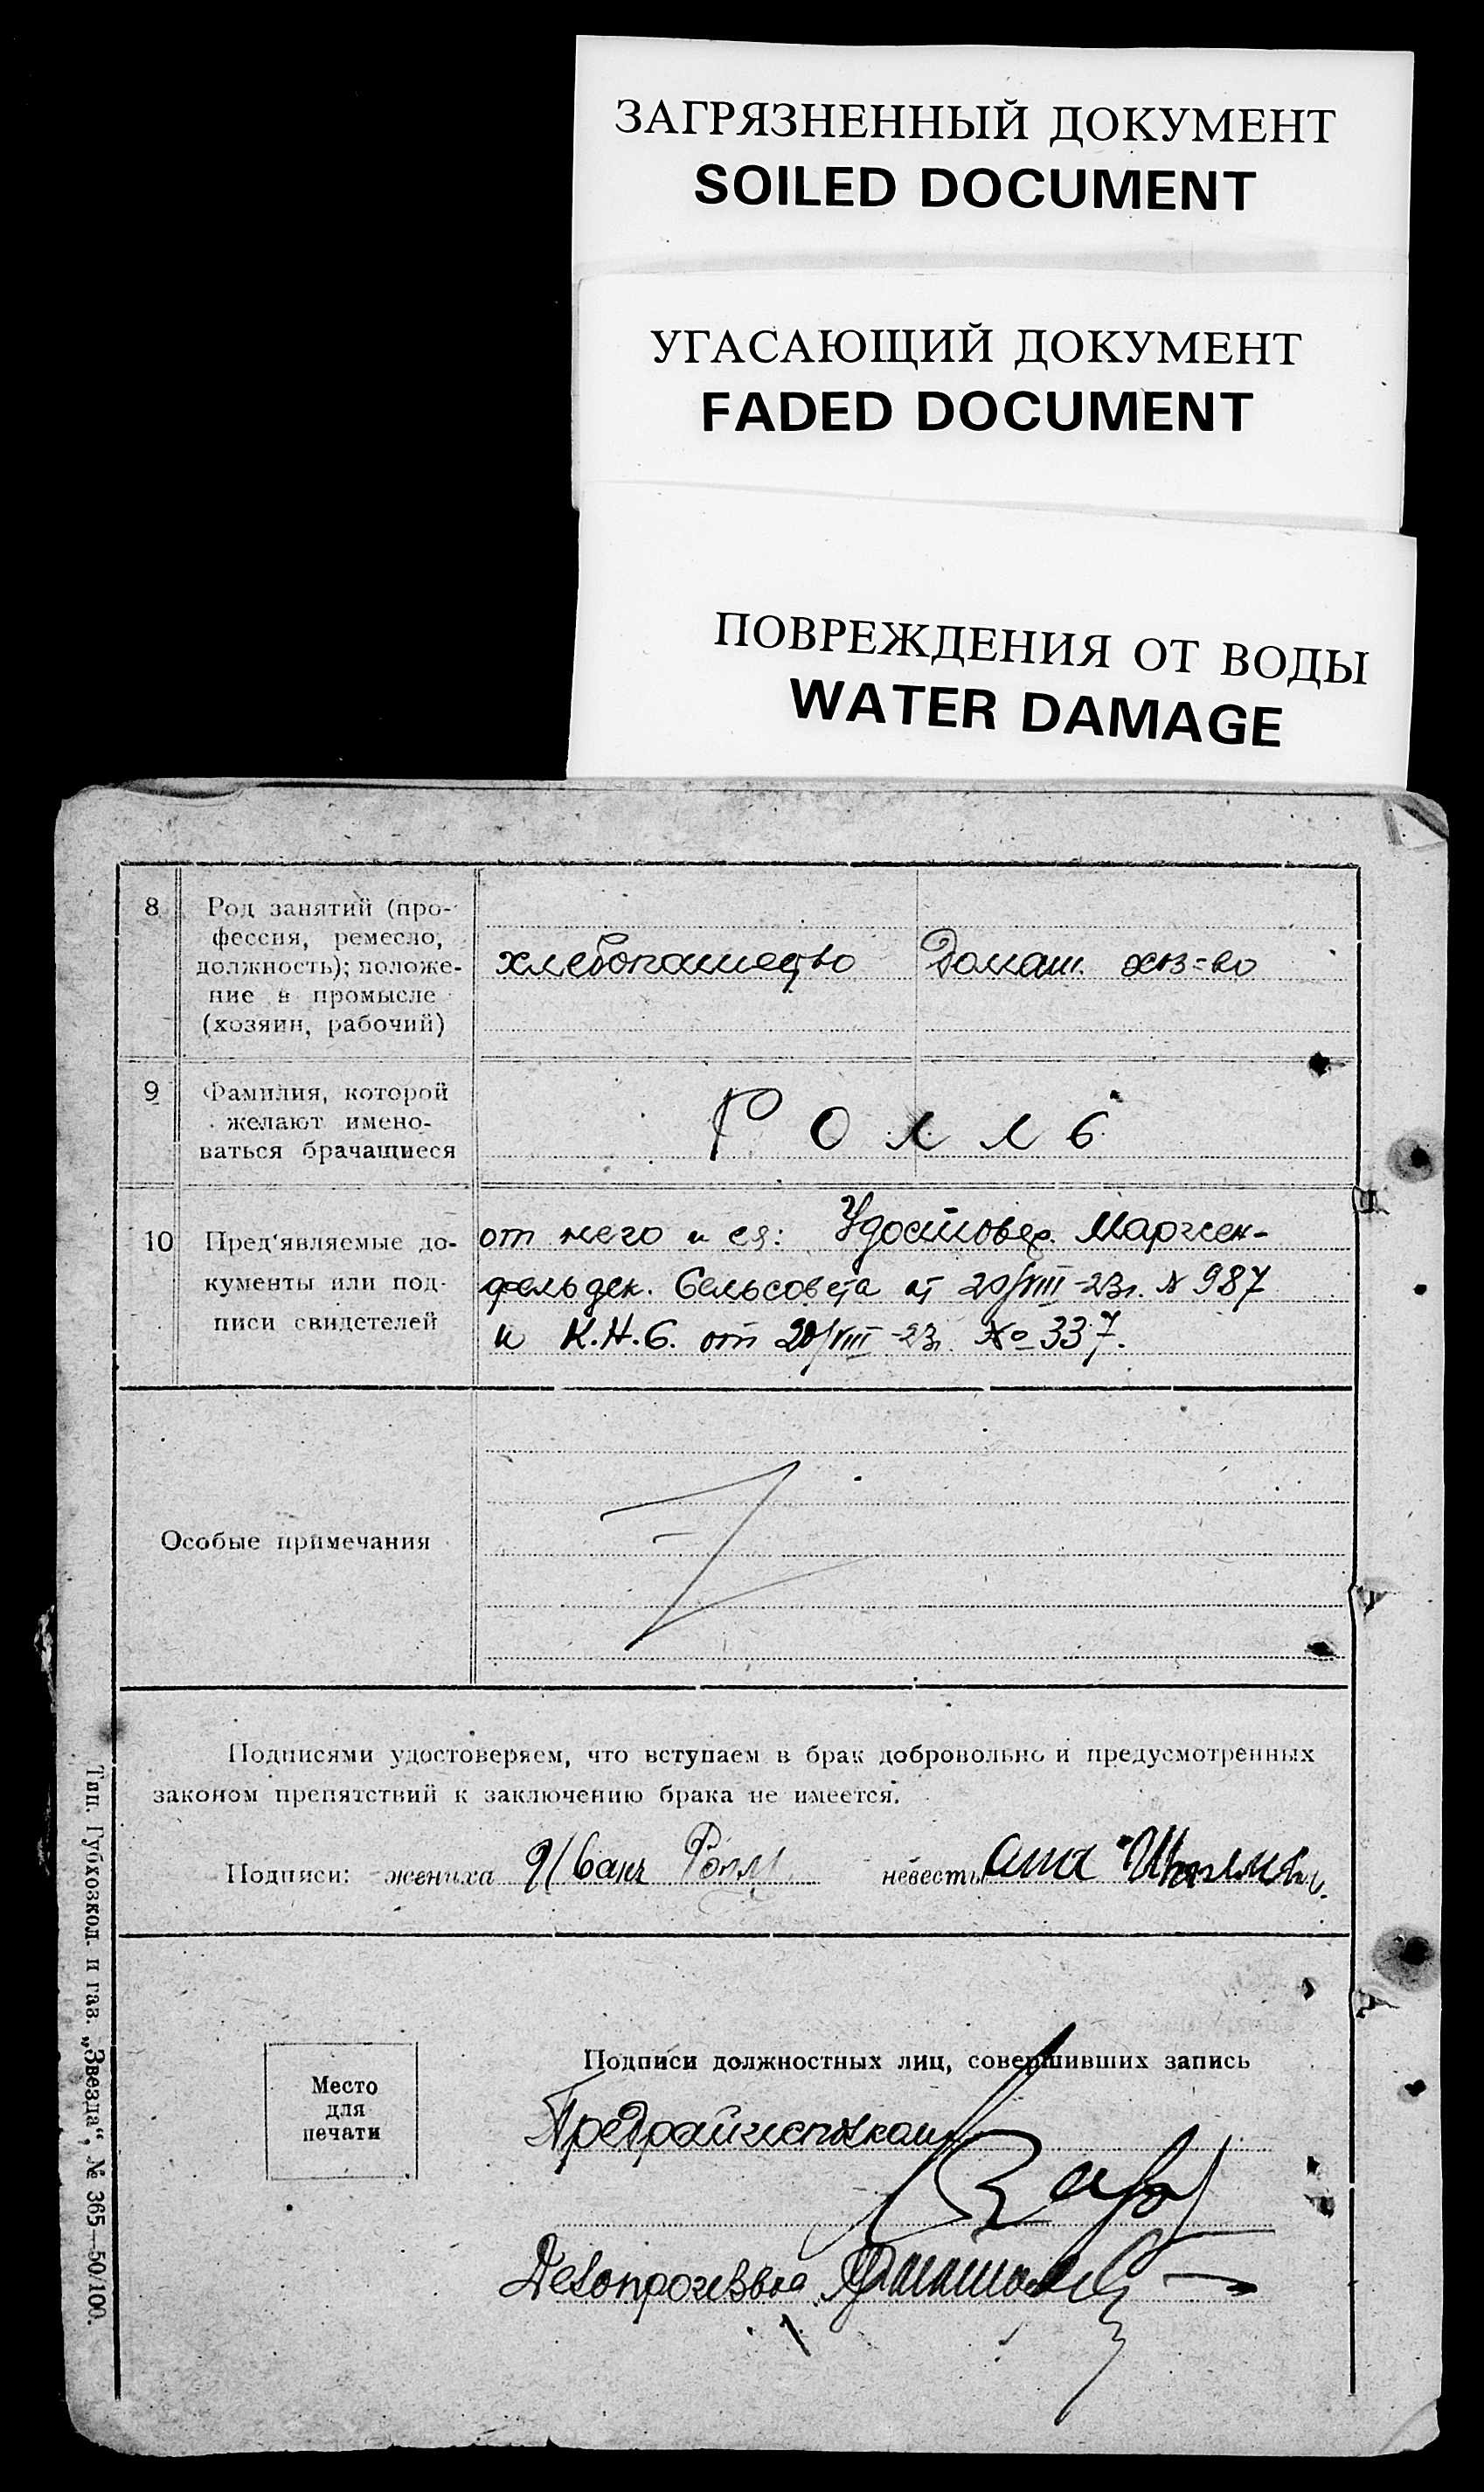 ЗАГРЯЗНЕННЫЙ ДОКУМЕНТ
SOILED DOCUMENT
УГАСАЮЩИЙ ДОКУМЕНТ
FADED DOCUMENT
ПОВРЕЖДЕНИЯ ОТ ВОДЫ
WATER DAMAGE
8
Род занятий (про-
фессия, ремесло,
должность); положе-
ние в промысле
(хозяин, рабочий)
хлебопашество
Домаш. хоз=во
9
Фамилия, которой
желают имено-
ваться брачащиеся
Ролль
10
Пред'являемые до-
кументы или под-
писи свидетелей
от него и ея: Удостовер.
Сельсовета от 20/VIII-23г. № 987
и К.Н.С. от 20/VIII-23г. № 337.
Особые примечания
Подписями удостоверяем, что вступаем в брак добровольно и предусмотренных
законом препятствий к заключению брака не имеется.
Подписи: жениха Иван Ролл невесты
Место
для
печати
Подписи должностных лиц, совершивших запись
Предрайисполкома
Делопроизвод
Тип. Губхозкол. и газ. „Звезда“, № 365—50/100.